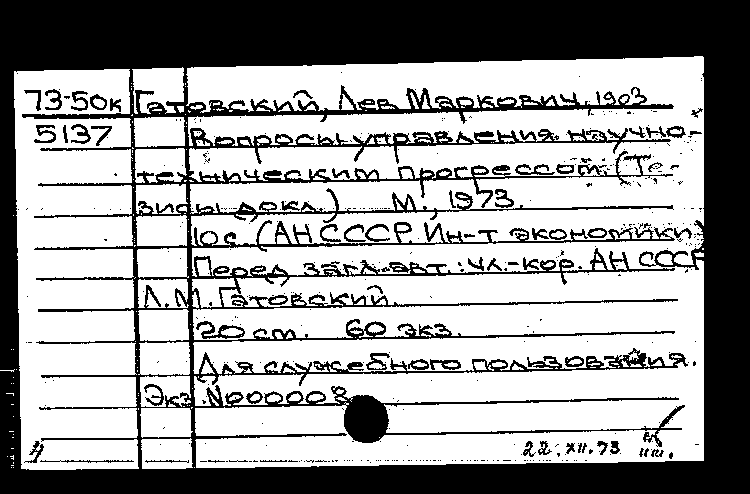 73-50к Гатовский, Лев Маркович, 1903
5137 Вопросы управления научно-
техническим прогрессом. (Те-
зисы докл.) М., 1973.
10 с. (АН СССР. Ин-т экономики)
Перед загл. авт.: чл.-кор. АН СССР
Л.М. Гатовский.
20 см. 60 экз.
Для служебного пользования.
Экз. N000008
4 22.XII.73